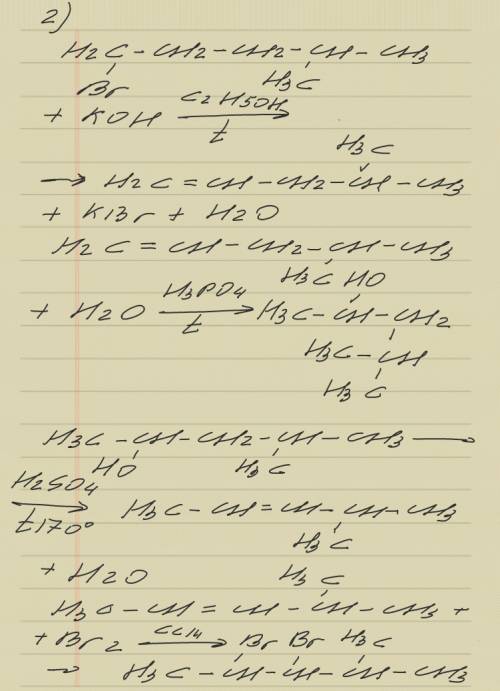 2)
H2C - CH2 - CH2 - CH - CH3
Br H3C
+ KOH C2H5OH
t
H3C
→ H2C = CH - CH2 - CH - CH3
+ KBr + H2O
H2C = CH - CH2 - CH - CH3
H3C HO
+ H2O H3PO4 → H3C - CH - CH2
t
H3C - CH
H3C
H3C - CH - CH2 - CH - CH3 →
HO H3C
H2SO4 → H3C - CH = CH - CH - CH3
t170°
H3C
+ H2O H3C
H3C - CH = CH - CH - CH3 +
+ Br2 CCl4 → Br Br H3C
→ H3C - CH - CH - CH - CH3